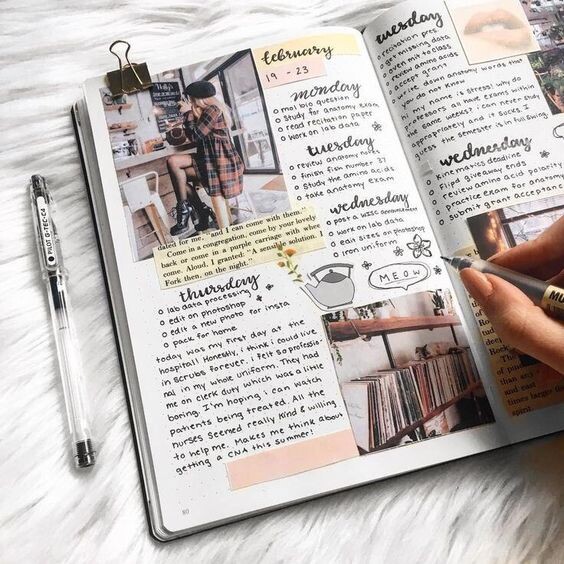 february
19 - 23
monday
o mol bio question
o study for anatomy exam
o read recitation paper
o work on lab data
tuesday
o review anatomy notes
o finish fish number 37
o study the amino acids
o take anatomy exam
wednesday
o post a WISC announcement
o work on lab data
o edit sizes on photoshop
o iron uniform
MEOW
dated for me, and I can come with them."
Come in a congregation, come by your lovely
back or come in a purple carriage with whee
come. Aloud, I granted: "A sensible solution.
Fork then, on the night."
thursday
o lab data processing
o edit on photoshop
o edit a new photo for insta
o pack for home
today was my first day at the
hospital! Honestly, i think i could live
in scrubs forever. i felt so professio-
nal in my whole uniform. They had
me on clerk duty which was a little
boring. I'm hoping i can watch
patients being treated. All the
nurses seemed really kind & willing
to help me. Makes me think about
getting a CNA this summer!
80
tuesday
o recitation pres
o get missing data
o even mit to class
o review amino acids
o accept grant
o write down anatomy words that
you do not know
my name is stress! why do
professors all have exams within
the same weeks? i can never study
appropriately and it sucks. I
guess the semester is in full swing
wednesday
o kinematics deadline
o flipd giveaway ends
o review amino acid polarity
o practice exam for anatomy
o submit grant acceptance
than any
and east
times large
the
spirit
PILOT G-TEC-C4